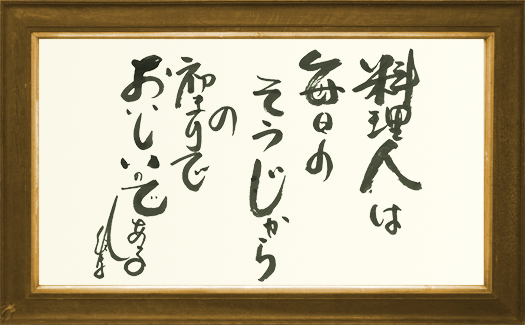 料理人は
毎日の
そうじから
の
初まりで
おいしいので
ある